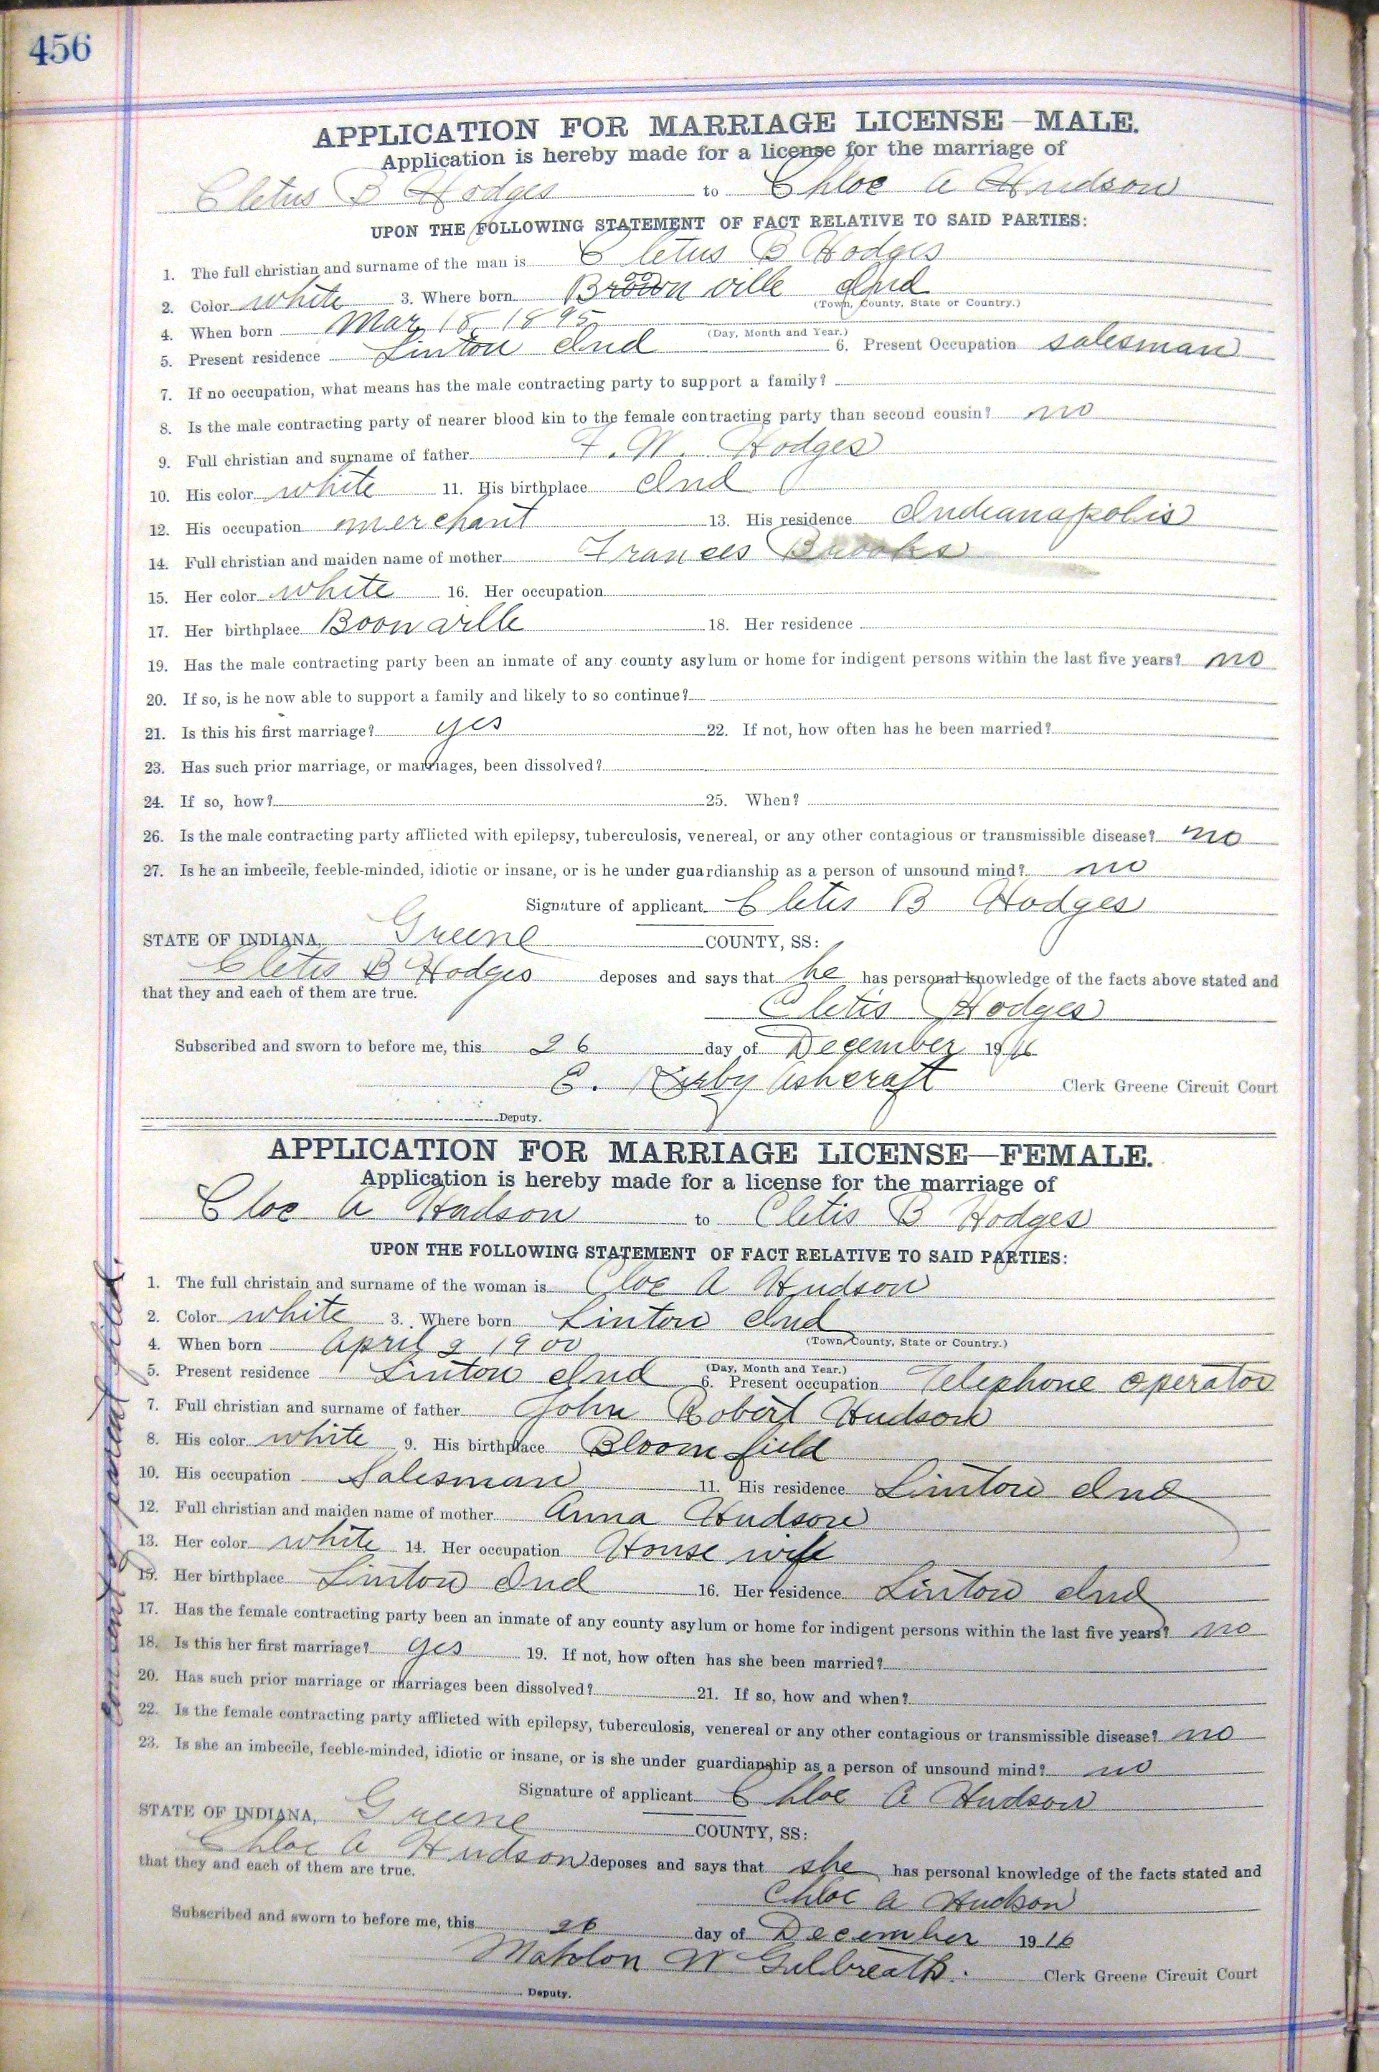 456
APPLICATION FOR MARRIAGE LICENSE—MALE.
Application is hereby made for a license for the marriage of
Cletus B Hodges to Chloe A Hudson
UPON THE FOLLOWING STATEMENT OF FACT RELATIVE TO SAID PARTIES:
1. The full christian and surname of the man is Cletus B Hodges
2. Color white 3. Where born ville Ind
(Town, County, State or Country.)
4. When born Mar 18 1895
(Day, Month and Year.)
5. Present residence Linton Ind 6. Present Occupation salesman
7. If no occupation, what means has the male contracting party to support a family?
8. Is the male contracting party of nearer blood kin to the female contracting party than second cousin? no
9. Full christian and surname of father F. W. Hodges
10. His color white 11. His birthplace Ind
12. His occupation merchant 13. His residence Indianapolis
14. Full christian and maiden name of mother Frances Brooks
15. Her color white 16. Her occupation
17. Her birthplace Boonville 18. Her residence
19. Has the male contracting party been an inmate of any county asylum or home for indigent persons within the last five years? no
20. If so, is he now able to support a family and likely to so continue?
21. Is this his first marriage? yes 22. If not, how often has he been married?
23. Has such prior marriage, or marriages, been dissolved?
24. If so, how? 25. When?
26. Is the male contracting party afflicted with epilepsy, tuberculosis, venereal, or any other contagious or transmissible disease? no
27. Is he an imbecile, feeble-minded, idiotic or insane, or is he under guardianship as a person of unsound mind? no
Signature of applicant. Cletis B Hodges
STATE OF INDIANA, Greene COUNTY, SS:
Cletis B Hodges deposes and says that he has personal knowledge of the facts above stated and
that they and each of them are true.
Cletis Hodges
Subscribed and sworn to before me, this 26 day of December 1916
E. Kirby Ashcraft Clerk Greene Circuit Court
Deputy.
APPLICATION FOR MARRIAGE LICENSE—FEMALE.
Application is hereby made for a license for the marriage of
Cloe A Hudson to Cletis B Hodges
UPON THE FOLLOWING STATEMENT OF FACT RELATIVE TO SAID PARTIES:
1. The full christain and surname of the woman is Cloe A Hudson
2. Color white 3. Where born Linton Ind
(Town, County, State or Country.)
4. When born April 2 1900
(Day, Month and Year.)
5. Present residence Linton Ind 6. Present occupation Telephone operator
7. Full christian and surname of father John Robert Hudson
8. His color white 9. His birthplace Bloomfield
10. His occupation Salesman 11. His residence Linton Ind
12. Full christian and maiden name of mother Anna Hudson
13. Her color white 14. Her occupation House wife
15. Her birthplace Linton Ind 16. Her residence Linton Ind
17. Has the female contracting party been an inmate of any county asylum or home for indigent persons within the last five years? no
18. Is this her first marriage? yes 19. If not, how often has she been married?
20. Has such prior marriage or marriages been dissolved? 21. If so, how and when?
22. Is the female contracting party afflicted with epilepsy, tuberculosis, venereal or any other contagious or transmissible disease? no
23. Is she an imbecile, feeble-minded, idiotic or insane, or is she under guardianship as a person of unsound mind? no
Signature of applicant Chloe A Hudson
STATE OF INDIANA, Greene COUNTY, SS:
Chloe A Hudson deposes and says that she has personal knowledge of the facts stated and
that they and each of them are true.
Chloe A Hudson
Subscribed and sworn to before me, this 26 day of December 1916
Maholon W Gulbreath. Clerk Greene Circuit Court
Deputy.
Consent of parent filed.